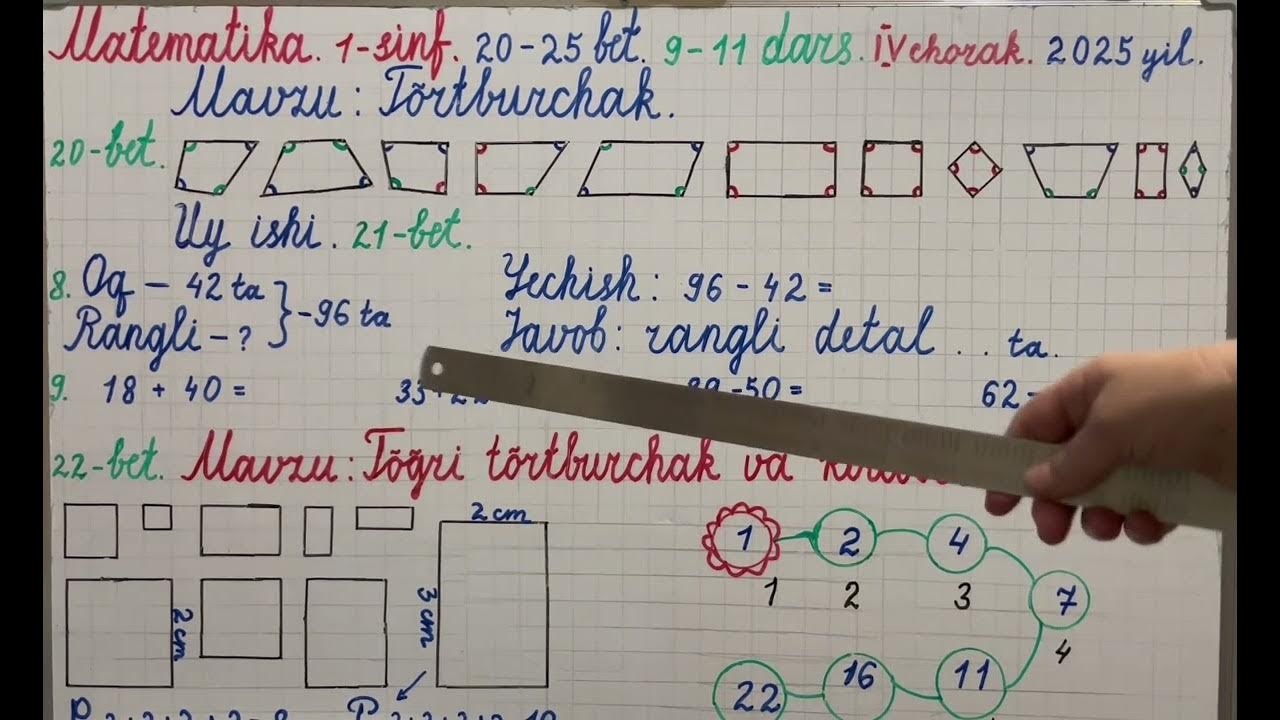 Matematika. 1-sinf. 20-25 bet. 9-11 dars. IV chorak. 2025 yil.
Mavzu: Tõrtburchak.
20-bet.
Uy ishi. 21-bet.
8. Oq - 42 ta
Rangli - ?
- 96 ta
Yechish: 96 - 42 =
Javob: rangli detal . . ta.
9. 18 + 40 =
-50 =
62 -
22-bet. Mavzu: Tõğri tõrtburchak va
2 cm
2 cm
3 cm
1 2 4
1 2 3
7
4
22 16 11